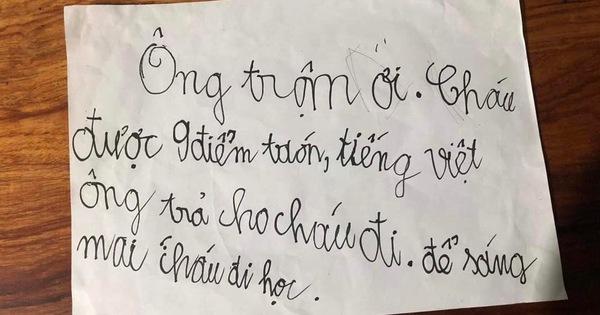 Ông trộm ơi. Cháu
được 9 điểm taón, tiếng việt
ông trả cho cháu đi. để sáng
mai cháu đi học.